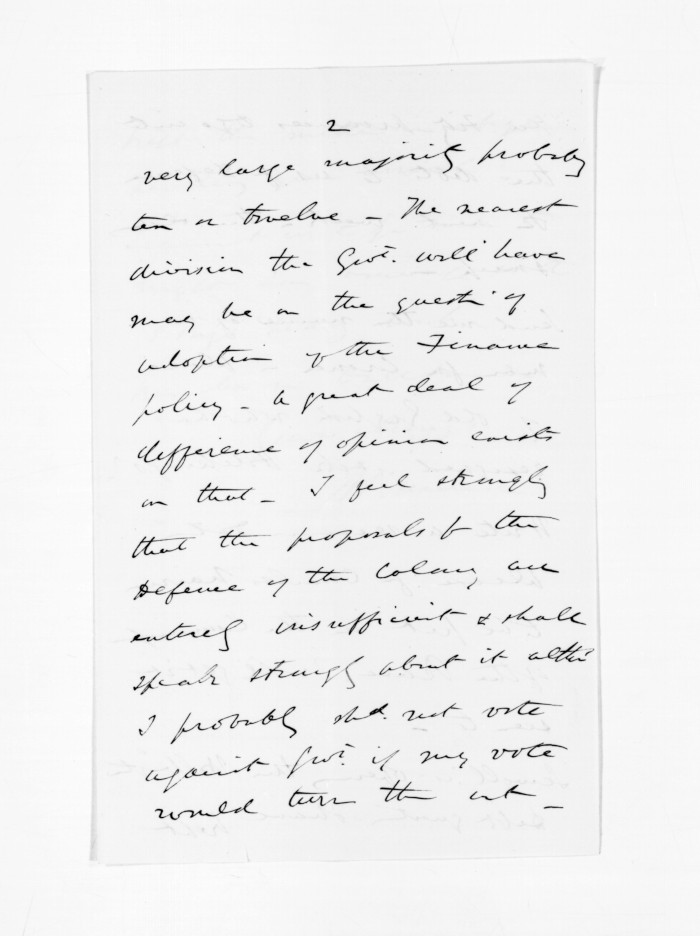 2
very large majority probably
ten or twelve – The nearest
division the Govt. will have
may be on the questn of
adoption of the Finance
policy – a great deal of
difference of opinion exists
on that – I feel strongly
that the proposals for the
Defence of the Colony are
entirely insufficient & shall
speak strongly about it altho'
I probably shd. not vote
against Govt. if my vote
would turn the